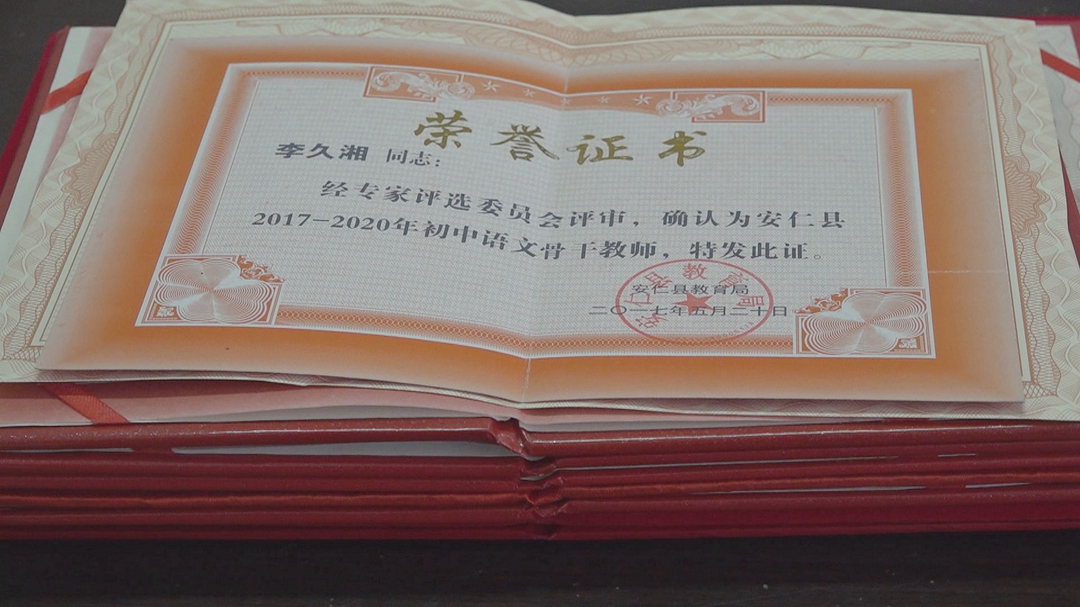 荣誉证书
李久湘 同志：
经专家评选委员会评审，确认为安仁县
2017-2020年初中语文骨干教师，特发此证。
安仁县教育局
二〇一七年五月二十日
安仁县教育局